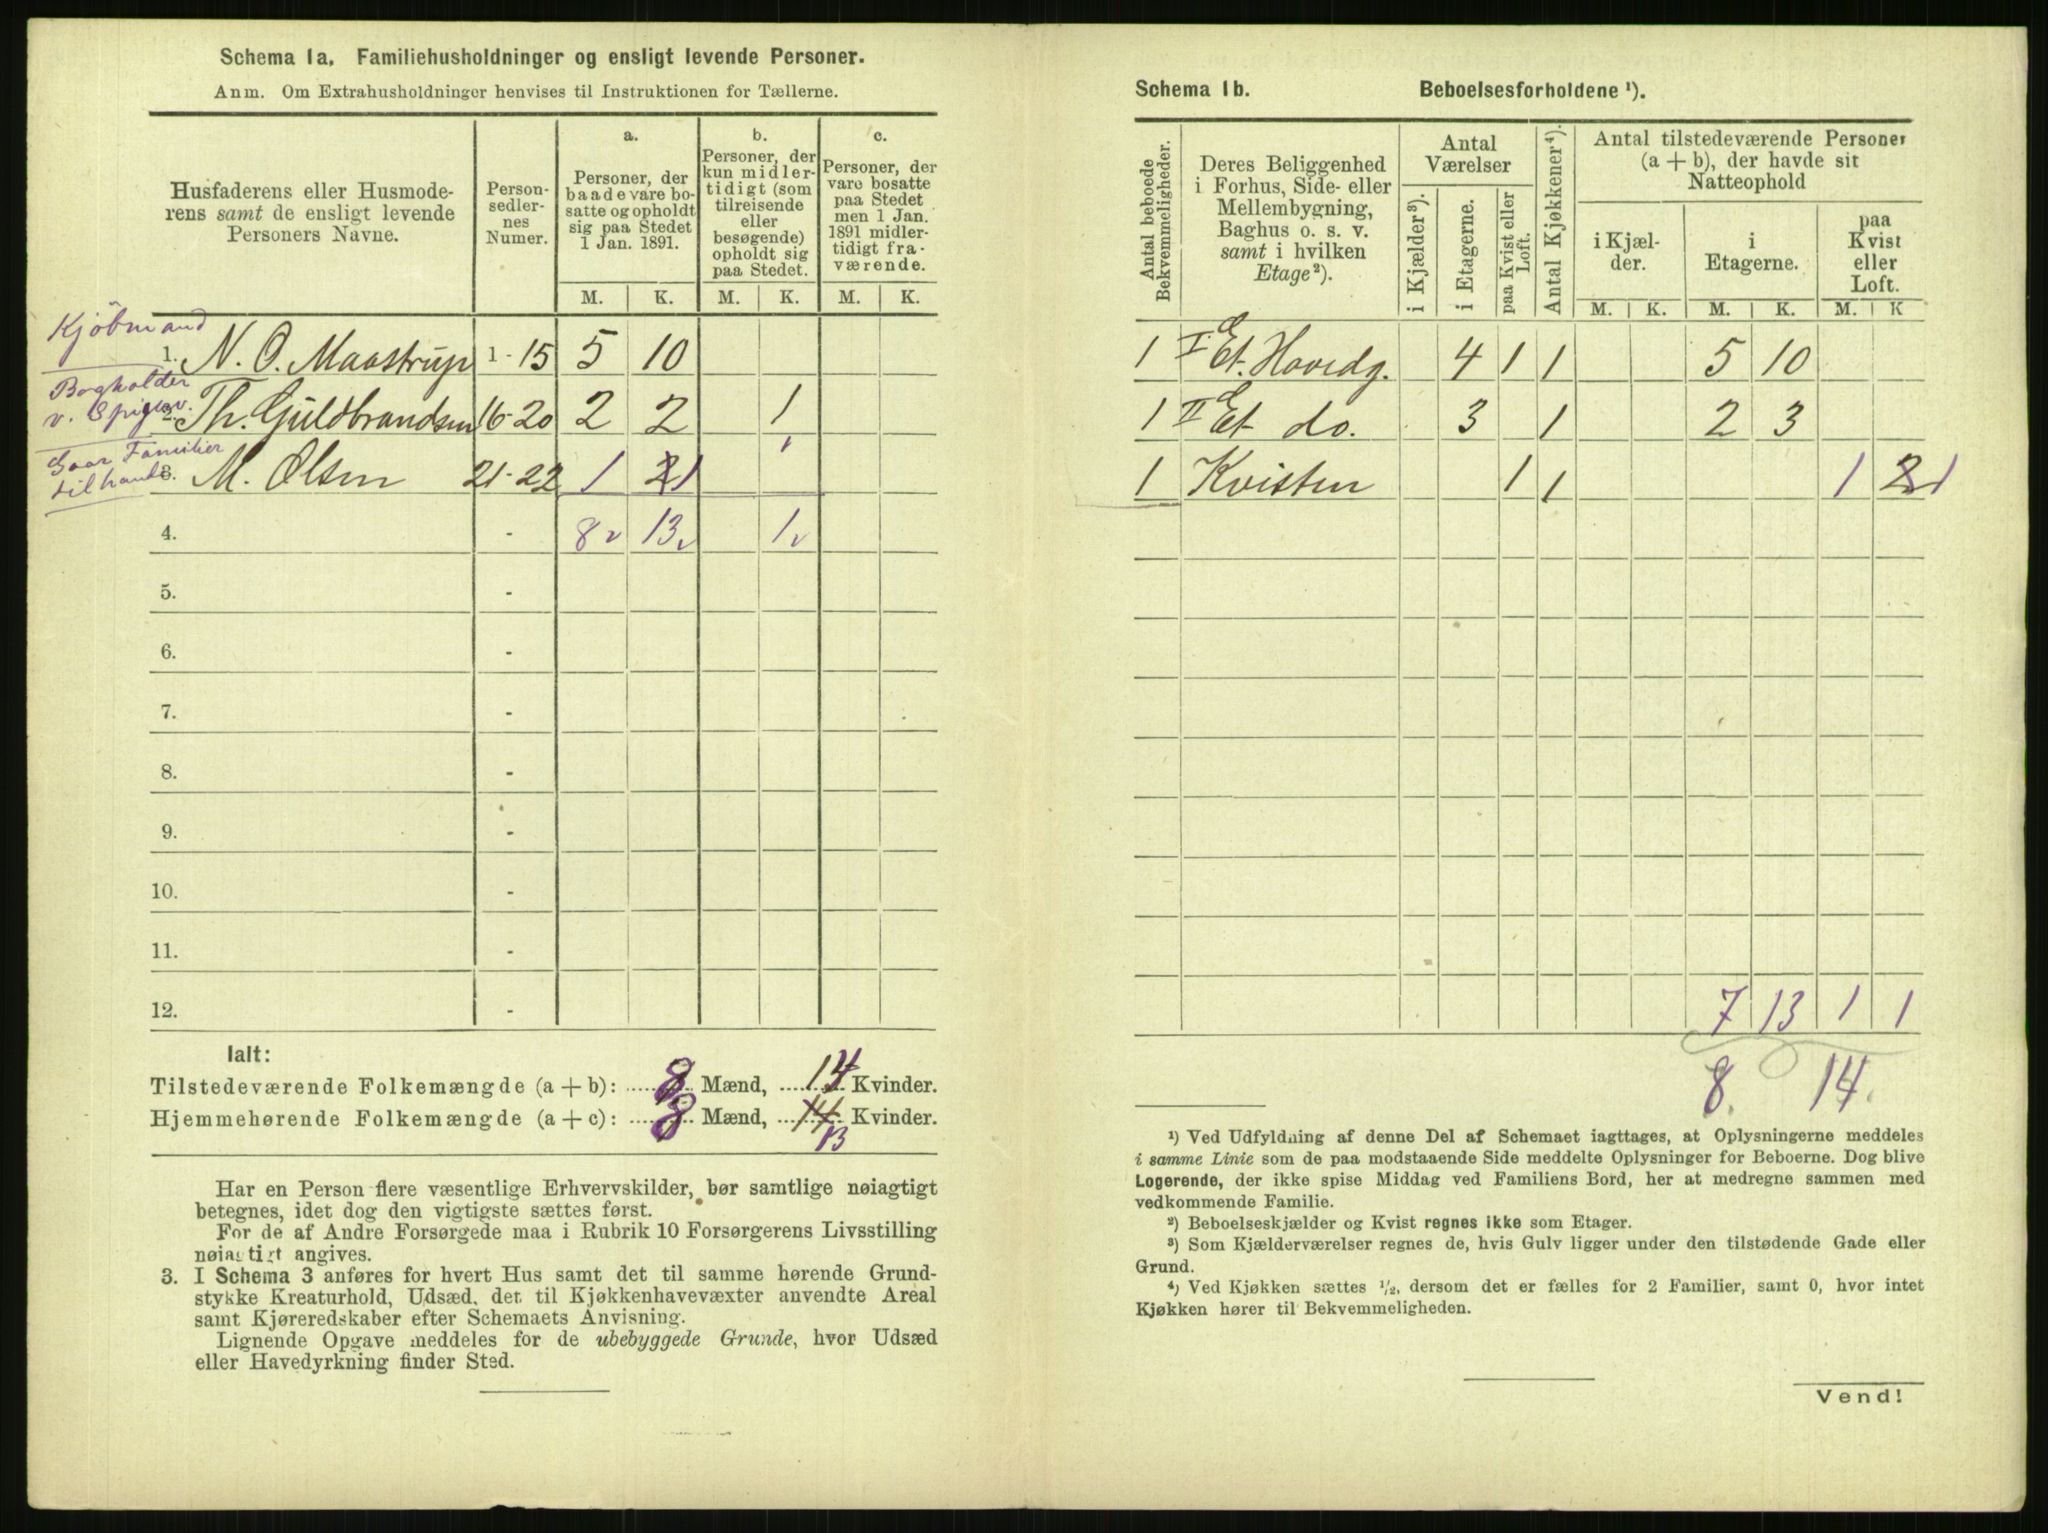 Schema 1a. Familiehusholdninger og ensligt levende Personer.
Anm. Om Extrahusholdninger henvises til Instruktionen for Tællerne.
Husfaderens eller Husmoderens samt de ensligt levende Personers Navne.
Personsedlernes Numer.
a.
Personer, der baade vare bosatte og opholdt sig paa Stedet 1 Jan. 1891.
b.
Personer, der kun midlertidigt (som tilreisende eller besøgende) opholdt sig paa Stedet.
c.
Personer, der vare bosatte paa Stedet men 1 Jan. 1891 midlertidigt fraværende.
M. K. M. K. M. K.
Kjöbmand
1. N. O. Maastrup 1 - 15 5 10
Bogholder
v. Spigerv.
2. Th. Guldbrandsen 16-20 2 2 1
Gaar Familier
tilhaande.
3. M. Olsen 21-22 1 2 1
4. - 8 13 1
5. -
6. -
7. -
8. -
9. -
10. -
11. -
12. -
Ialt:
Tilstedeværende Folkemængde (a + b): 8 Mænd, 14 Kvinder.
Hjemmehørende Folkemængde (a + c): 8 Mænd, 14 Kvinder.
13
Har en Person flere væsentlige Erhvervskilder, bør samtlige nøiagtigt
betegnes, idet dog den vigtigste sættes først.
For de af Andre Forsørgede maa i Rubrik 10 Forsørgerens Livsstilling
nøiagtigt angives.
3. I Schema 3 anføres for hvert Hus samt det til samme hørende Grund-
stykke Kreaturhold, Udsæd, det til Kjøkkenhavevæxter anvendte Areal
samt Kjøreredskaber efter Schemaets Anvisning.
Lignende Opgave meddeles for de ubebyggede Grunde, hvor Udsæd
eller Havedyrkning finder Sted.
Schema 1b. Beboelsesforholdene ¹).
Antal beboede Bekvemmeligheder.
Deres Beliggenhed i Forhus, Side- eller Mellembygning, Baghus o. s. v. samt i hvilken Etage²).
Antal Værelser
i Kjælder³).
i Etagerne.
paa Kvist eller Loft.
Antal Kjøkkener⁴).
Antal tilstedeværende Personer (a + b), der havde sit Natteophold
i Kjælder.
i Etagerne.
paa Kvist eller Loft.
M. K. M. K. M. K
1 I Et. Hovedg. 4 1 1 5 10
1 II Et do. 3 1 2 3
1 Kvisten 1 1 1 2 1
7 13 1 1
8. 14.
¹) Ved Udfyldning af denne Del af Schemaet iagttages, at Oplysningerne meddeles
i samme Linie som de paa modstaaende Side meddelte Oplysninger for Beboerne. Dog blive
Logerende, der ikke spise Middag ved Familiens Bord, her at medregne sammen med
vedkommende Familie.
²) Beboelseskjælder og Kvist regnes ikke som Etager.
³) Som Kjælderværelser regnes de, hvis Gulv ligger under den tilstødende Gade eller
Grund.
⁴) Ved Kjøkken sættes ¹/₂, dersom det er fælles for 2 Familier, samt 0, hvor intet
Kjøkken hører til Bekvemmeligheden.
Vend!